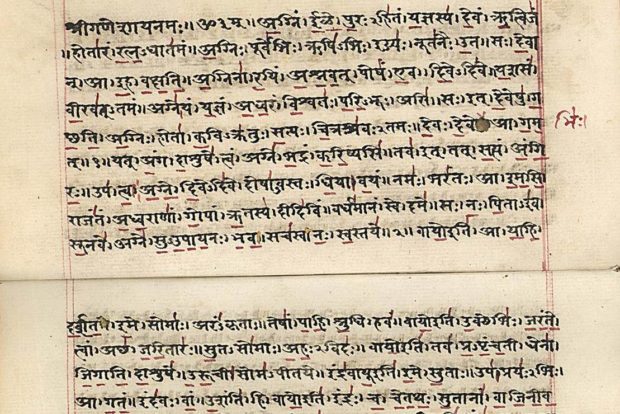 श्रीगणेशायनमः॥ॐ३म्॥अग्निं।ईळे।पुरःऽहितं।यज्ञस्य।देवं।ऋत्विजं
।होतारं।रत्नऽधातमं॥अग्निः।पूर्वेभिः।ऋषिऽभिः।ईड्यः।नूतनैः।उत।सः।देवा
न्।आ।इह।वक्षति॥अग्निना।रयिं।अश्नवत्।पोषं।एव।दिवेऽदिवे।यशसं
वीरवत्ऽतमं॥अग्ने।यं।यज्ञं।अध्वरं।विश्वतः।परिऽभूः।असि।सः।इत्।देवेषु।ग
च्छति॥अग्निः।होता।कविऽक्रतुः।सत्यः।चित्रश्रवःऽतमः।देवः।देवे।आ।गम
भिः।
त्॥१॥यत्।अंग।दाशुषे।त्वं।अग्ने।भद्रं।करिष्यसि।तव।इत्।तत्।सत्यं।अंगि
रः॥उप।त्वा।अग्ने।दिवेऽदिवे।दोषाऽवस्तः।धिया।वयं।नमः।भरंतः।आ।इमसि
राजंतं।अध्वराणां।गोपां।ऋतस्य।दीदिविं।वर्धमानं।स्वे।दमे॥सः।नः।पिताऽइव
सूनवे।अग्ने।सुऽउपायनः।भव॥सचस्व।नः।स्वस्तये॥२॥वायोइति।आ।याहि।
दर्शत।इमे।सोमाः।अरंऽकृताः॥तेषां।पाहि।श्रुधि।हवं॥वायोइति।उक्थेभिः।जरंते
त्वां।अच्छ।जरितारः॥सुतऽसोमाः।अहःऽविदः॥वायोइति।तव।प्रऽपृंचती।धेना।
जिगाति।दाशुषे।उरूची।सोमऽपीतये॥इंद्रवायूइति।इमे।सुताः।उप।प्रयःऽभिः।
आ।गतं।इंदवः।वां।उशंति।हि॥वायोइति।इंद्रः।च।चेतथः।सुतानां।वाजिनीव